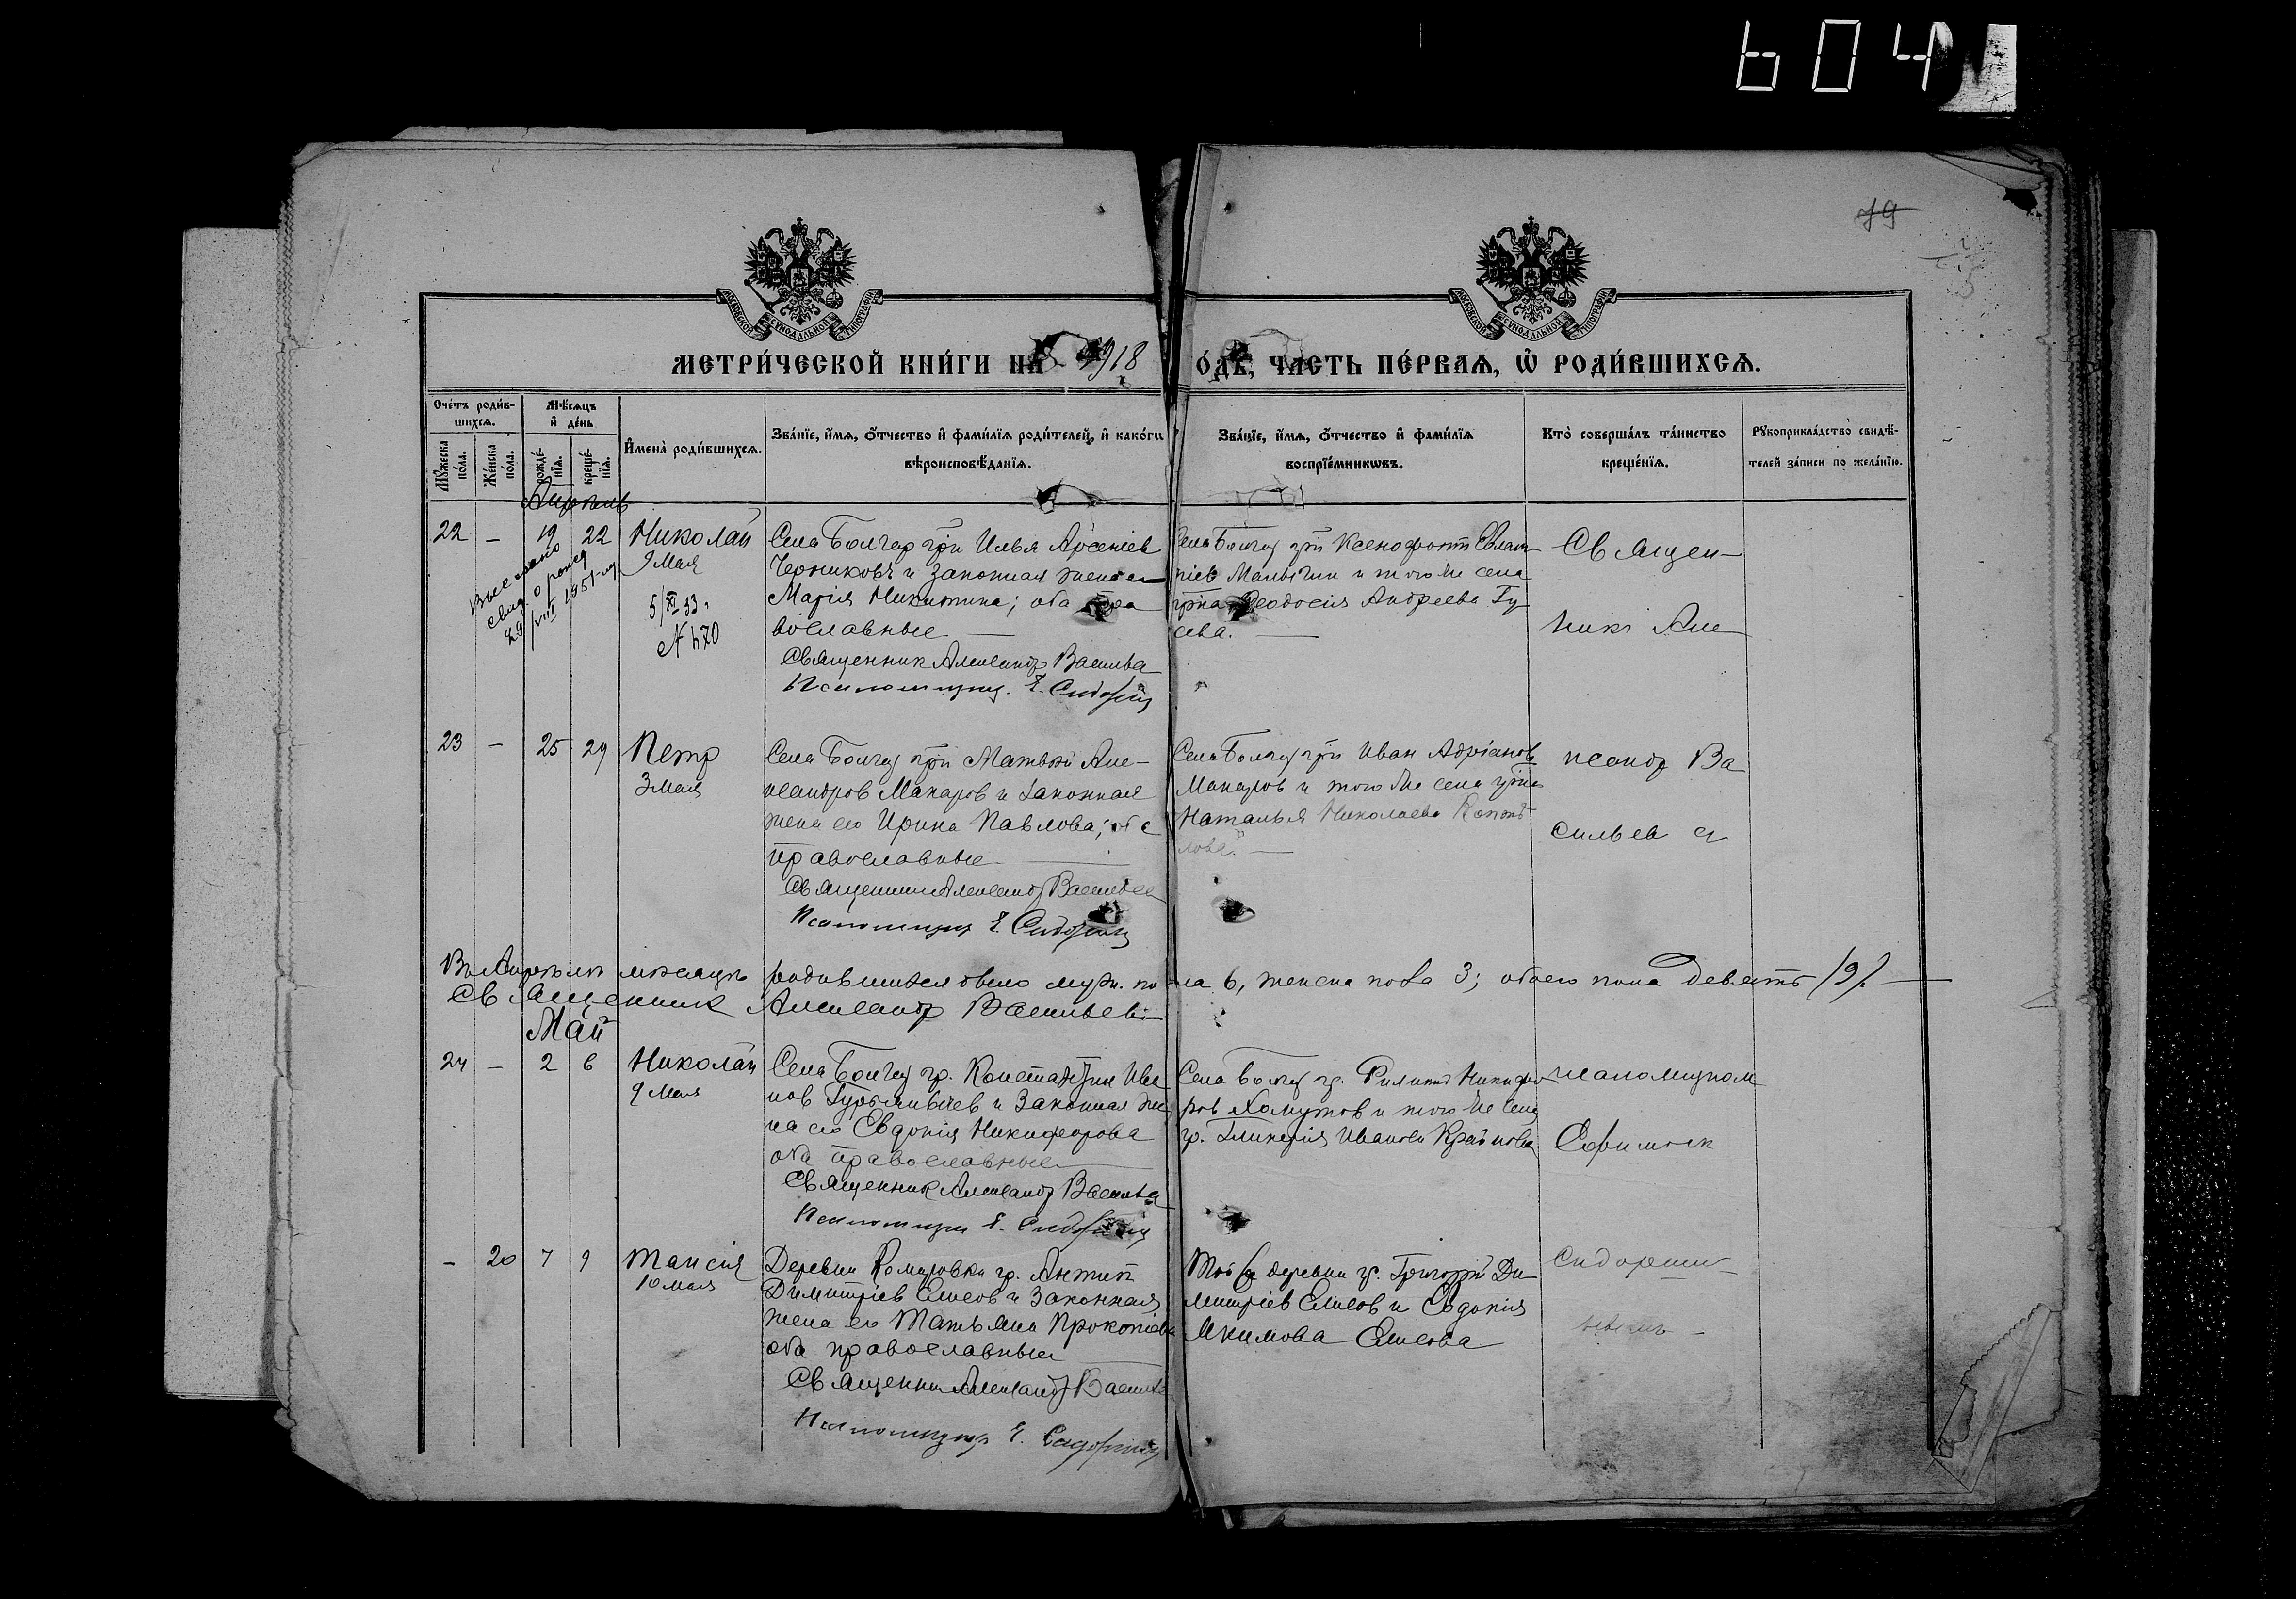 604
79
МОСКОВСКОЙ СУНОДАЛЬНОЙ ТИПОГРАФІИ
МОСКОВСКОЙ СУНОДАЛЬНОЙ ТИПОГРАФІИ
МЕТРИ́ЧЕСКОЙ КНИ́ГИ НА 1918 О́ДЪ, ЧА́СТЬ ПЕ́РВАѦ, Ѡ РОДИ́ВШИХСѦ.
Сче́тъ роди́в-
шихсѧ.
Мꙋ́жеска по́ла.
Же́нска по́ла.
Мѣ́сѧцъ и де́нь
рожде́-нїѧ.
креще́-нїѧ.
И҆мена̀ роди́вшихсѧ.
Зва́нїе, и҆́мѧ, ѻ҆́тчество и҆ фами́лїѧ роди́телей, и҆ како́гѡ
вѣроисповѣ́данїѧ.
Зва́нїе, и҆́мѧ, ѻ҆́тчество и҆ фами́лїѧ
воспрїе́мникѡвъ.
Кто̀ соверша́лъ та́инство
креще́нїѧ.
Рꙋкоприкла́дство свидѣ́-
телей за́писи по жела́нїю.
Апрѣль
22 — 19 22 Николай
9 Мая
5/XI 33.
№ 470
Выслано
свид. о рожд
29/VII 1951 г.
Села Болгар гр̃н Илья Арсеніев
Черниковъ и законная жена ег
Марія Никитина; оба пра
вославные —
Священник Александр Василье
Псаломщик. Е. Сидоркин
Села Болгар гр̃н Ксенофонт Евлам
піев Малыгин и того же села
гр̃ка Феодосія Андреева Гу
сева. —
Священ-
никъ Але
23 — 25 29 Петр
3 Мая
Села Болгар гр̃н Матвѣй Але-
ксандров Макаров и законная
жена его Ирина Павлова; оба
православные —
Священник Александр Васильев
Псаломщик Е. Сидоркин
Села Болгар гр̃н Иван Адріанов
Макаров и того же села гр̃ка
Наталья Николаева
лова. —
ксандр Ва
сильев с
Въ Апрѣлѣ мѣсяцѣ родившихся было муж. пола 6, женска пола 3; обоего пола девять /9/. —
Священник Александр Васильев
Май
24 — 2 6 Николай
9 Мая
Села Болгар гр. Константин Ива
нов Гурьянычев и законная же
на его Евдокія Никифорова
оба православные —
Священник Александр Василье
Псаломщик Е. Сидоркин
Села Болгар гр. Филипп Никифо
ров Хомутов и того же села
гр. Гликерія Иванова Крайнова
псаломщиком
Ефимом
— 20 7 9 Таисія
10 мая
Деревни Комаровки гр. Антип
Димитріев Елисов и законная
жена его Татьяна Прокопіева
оба православные —
Священник Александр Василье
Псаломщик Е. Сидоркин
Той же деревни гр. Григорій Ди-
митріев Елисов и Евдокія
Якимова Елисова
Сидорки-
нымъ —